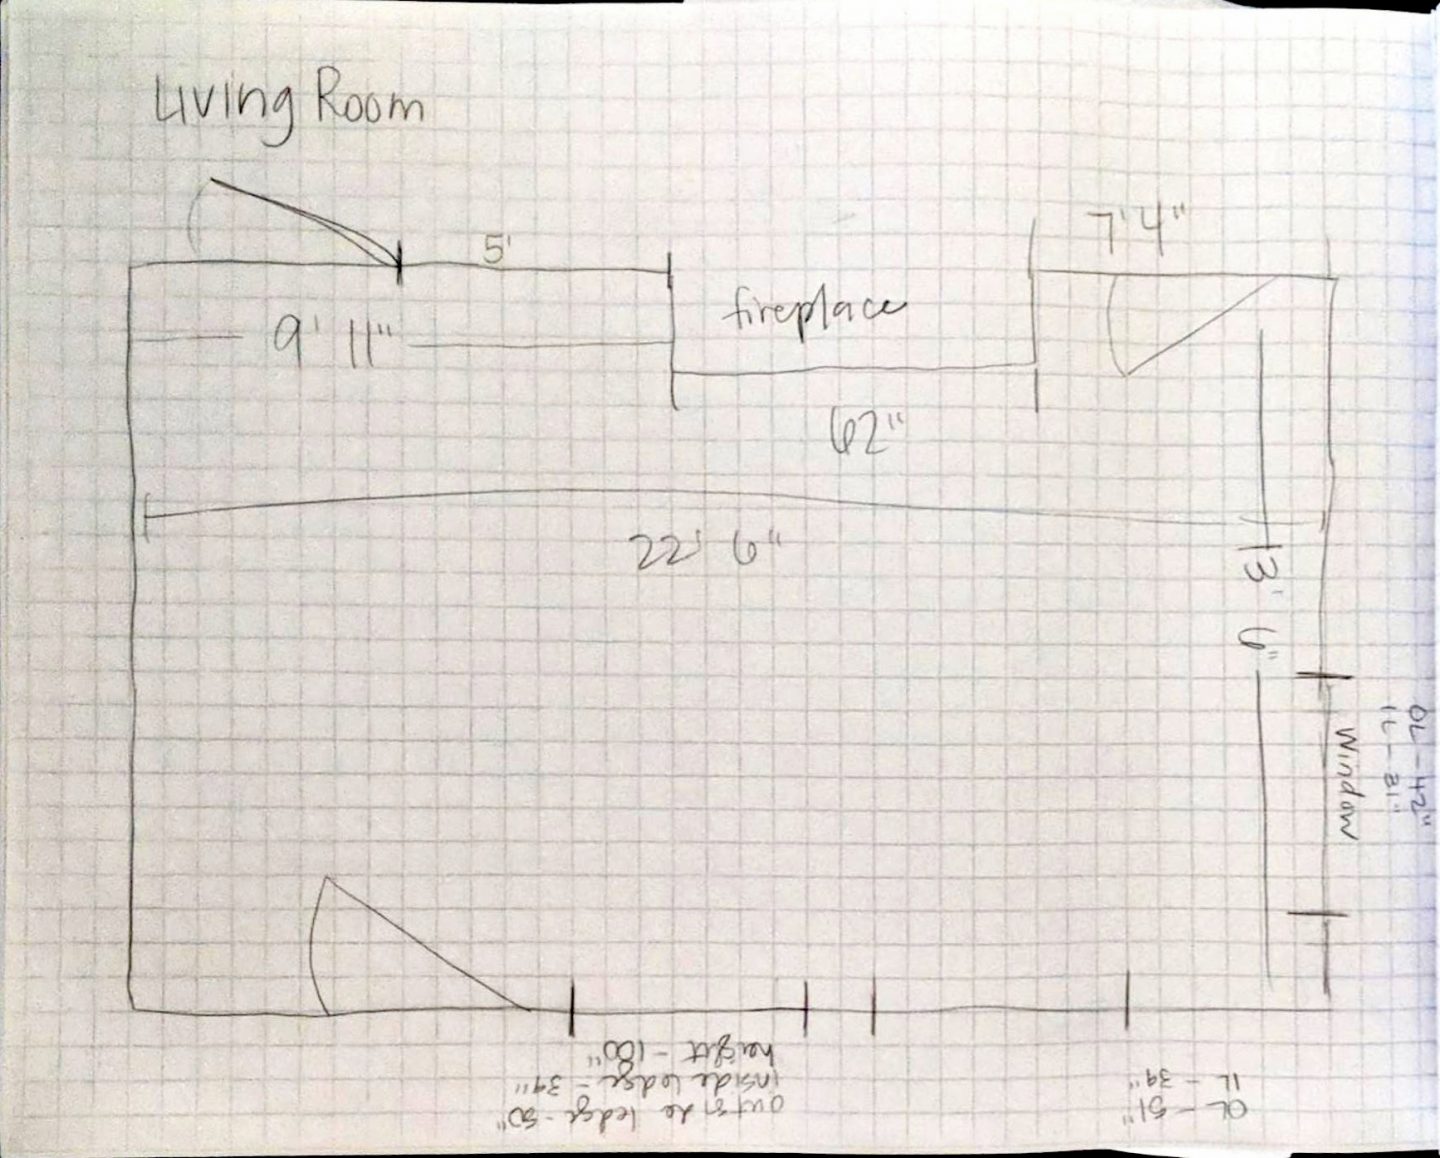 Living Room
5'
7' 4"
fireplace
9' 11"
62"
22' 6"
13' 6"
Window
OL - 42"
IL - 31"
outside ledge - 50"
inside ledge - 39"
height - 100"
OL - 51"
IL - 39"